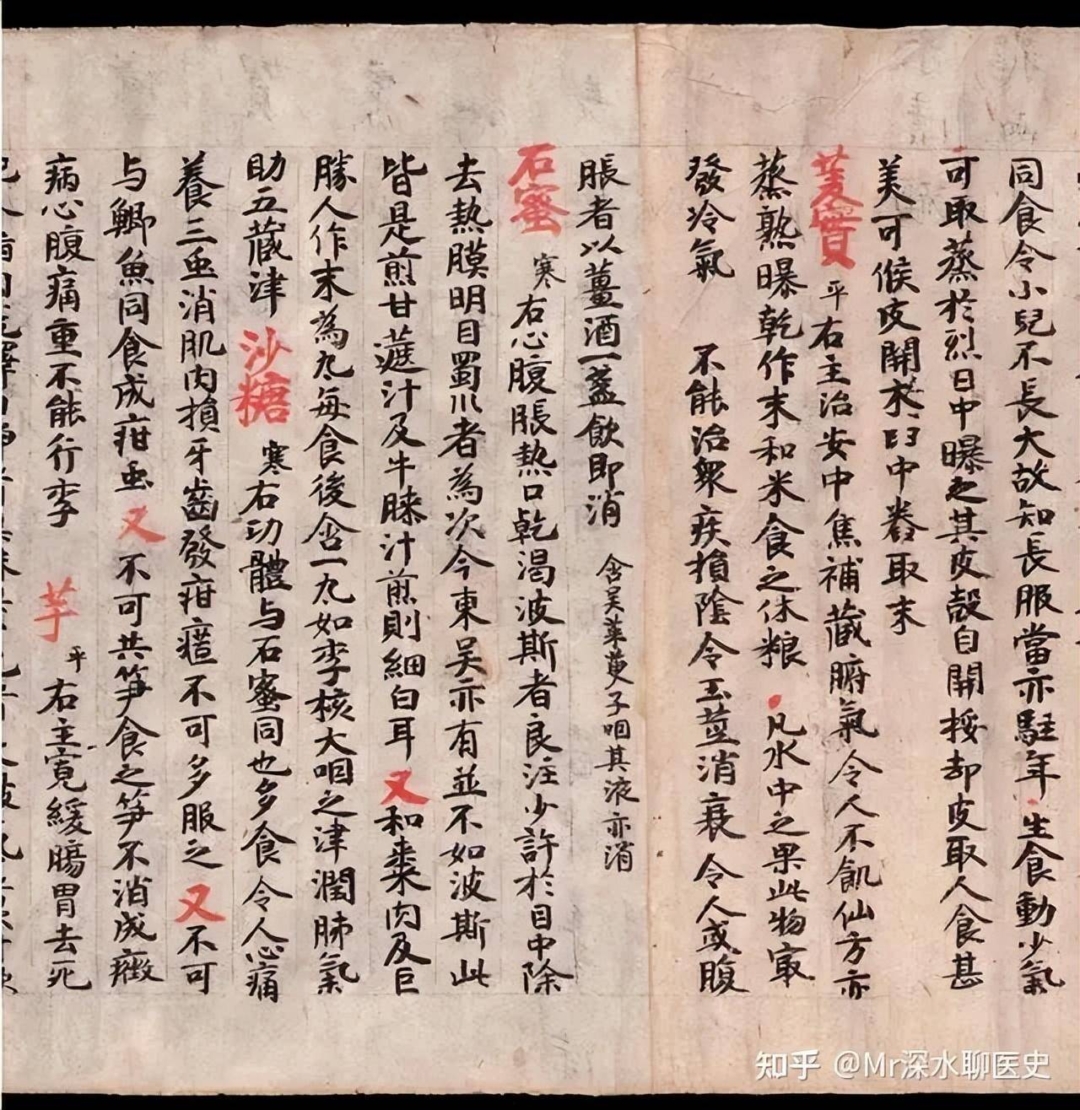 同食令小兒不長大故知長服當亦駐年生食動少氣
可取蒸於烈日中曝之其皮殼自開挼却皮取人食甚
美可候皮開末臼中舂取末
菱實平右主治安中焦補藏腑氣令人不飢仙方亦
蒸熟曝乾作末和米食之休粮凡水中之果此物寂
發冷氣不能治衆疾損陰令玉莖消衰令人或腹
脹者以薑酒一盞飲即消含吴茱萸子咽其液亦消
石蜜寒右心腹脹熱口乾渴波斯者良注少許於目中除
去熱膜明目蜀川者為次今東吴亦有並不如波斯此
皆是煎甘蔗汁及牛膝汁煎則細白耳又和棗肉及巨
勝人作末為丸每食後含一丸如李核大咽之津潤肺氣
助五藏津沙糖寒右功體与石蜜同也多食令人心痛
養三虫消肌肉損牙齒發疳䘌不可多服之又不可
与鯽魚同食成疳虫又不可共笋食之笋不消成癥
病心腹痛重不能行李芋平右主寛緩腸胃去死
知乎 @Mr深水聊医史